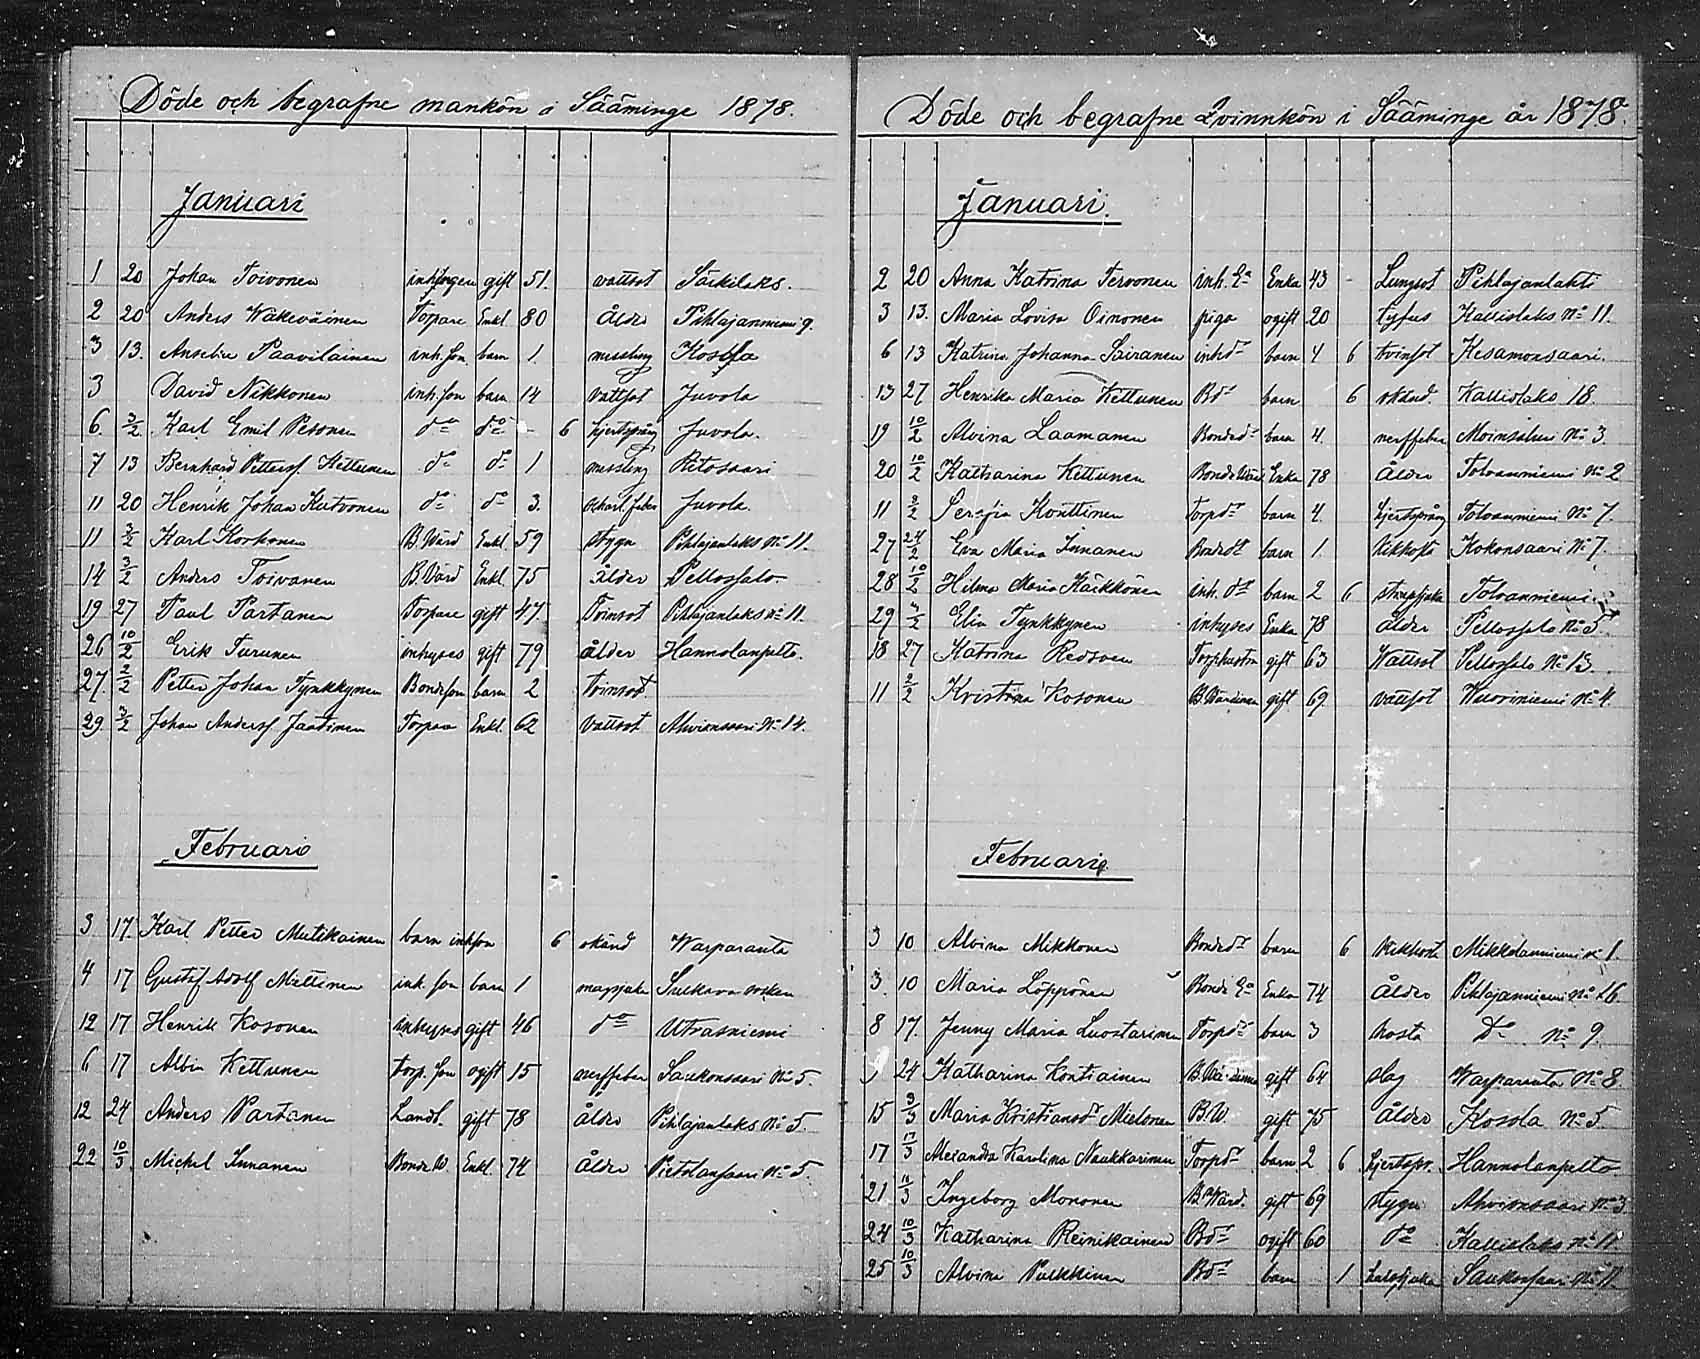 Döde och begrafne mankön i Sääminge 1878.
Januari
1 20 Johan Toivonen inhysgen gift 51. vattsot Särkilaks.
2 20 Anders Wäkeväinen Torpare Enkl. 80 Ålder Pihlajanniemi 9.
3 13. Anselm Paavilainen inh. son barn 1. messling Kosola
3 David Nikkonen inh. son barn 14 vattsot Juvola
6. 3/2 Karl Emil Pesonen do do - 6 hjertsprång Juvola.
7 13 Bernhard Petterss. Kettunen do do 1 messling Ritosaari
11 20 Henrik Johan Kutvonen do do 3. scharl. feber Juvola.
11 3/2 Karl Korhonen B. Wärd Enkl. 59 stygn Pihlajanlaks No 11.
14 3/2 Anders Toivanen B. Värd Enkl. 75 ålder Pellossalo
19 27 Paul Partanen Torpare gift 47. Tvinsot Pihlajanlaks No 11.
26 10/2 Erik Turunen inhyses gift 79 ålder Hannolanpelto.
27. 2/2 Petter Johan Tynkkynen Bondeson barn 2 Tvinsot.
29. 3/2 Johan Anderss. Jaatinen Torpare Enkl. 62 vattsot Ahvionsaari No 14.
Februari
3 17. Karl Petter Mutikainen barn inh son 6 okänd Warparanta
4 17 Gustaf Adolf Miettinen inh. son barn 1 magsjuka Sulkava socken
12 17 Henrik Kosonen inhyses gift 46 do Utrasniemi
6 17 Albin Kettunen Torp. son ogift 15 nerffeber Saukonsaari No 5.
12 24 Anders Partanen Landb. gift 78 Ålder Pihlajanlaks No 5.
22 10/3. Michel Innanen Bonde W. Enkl. 74 Ålder Pietolansaari No 5.
Döde och begrafne Qvinnkön i Sääminge år 1878.
Januari.
2 20 Anna Katrina Tervonen inh. Ea Enka 43 - Lungsot Pihlajanlahti
3 13. Maria Lovisa Oinonen piga ogift 20 tyfus Kallislaks No 11.
6 13 Katrina Johanna Sairanen inh dr barn 4 6 tvinsot Kesamonsaari.
13 27 Henrika Maria Kettunen Bdr barn 6 okänd. Kallislaks 18.
19 10/2 Alvina Laamanen Bondedr barn 4. nerffeber Moinsalmi No 3
20 10/2 Katharina Kettunen Bonde Enka 78 Ålder Tolvanniemi No 2
11 2/2 Serafia Konttinen Torpdr barn 4. hjertsprång Tolvanniemi No 7.
27 24/2 Eva Maria Innanen Bondedr barn 1. kikhosta Kokonsaari No 7.
28 10/2 Hilma Maria Käkkönen inh. dr barn 2 6 strupsjuka Tolvanniemi
29 3/2 Elin Tynkkynen inhyses Enka 78 ålder Pellossalo No 5.
18 27 Katrina Redsven Torphustru gift 63 Vattsot Pellossalo No 13.
11 2/2 Kristina Kosonen B. Wärdinna gift 69. vattsot Kuoriniemi No 4.
Februari.
3 10 Alvina Mikkonen Bondedr barn 6 kikhosta Mikkolanniemi No 1.
3. 10 Maria Löppönen Bonde Ea Enka 74 Ålder Pihlajanniemi No 16
8 17. Jenny Maria Luostarinen Torpdr barn 3 hosta Do No 9.
9 24 Katharina Kontiainen B. Wärdinna gift 64 slag Warparanta No 8.
15 3/3 Maria Kristiansdr Mielonen B. W. gift 75 Ålder Kosola No 5
17 17/3 Alexandra Karolina Naukkarinen Torpdr barn 2 6 hjertspr. Hannolanpelto
21 /3 Ingeborg Mononen B. Wärd. gift 69 stygn Ahvionsaari No 3
24 10/3 Katharina Reinikainen Bdr ogift 60 do Kallislaks No 11.
25 10/3 Alvina Pulkkinen Bdr barn 1 halssjuka Saukonsaari No 11.